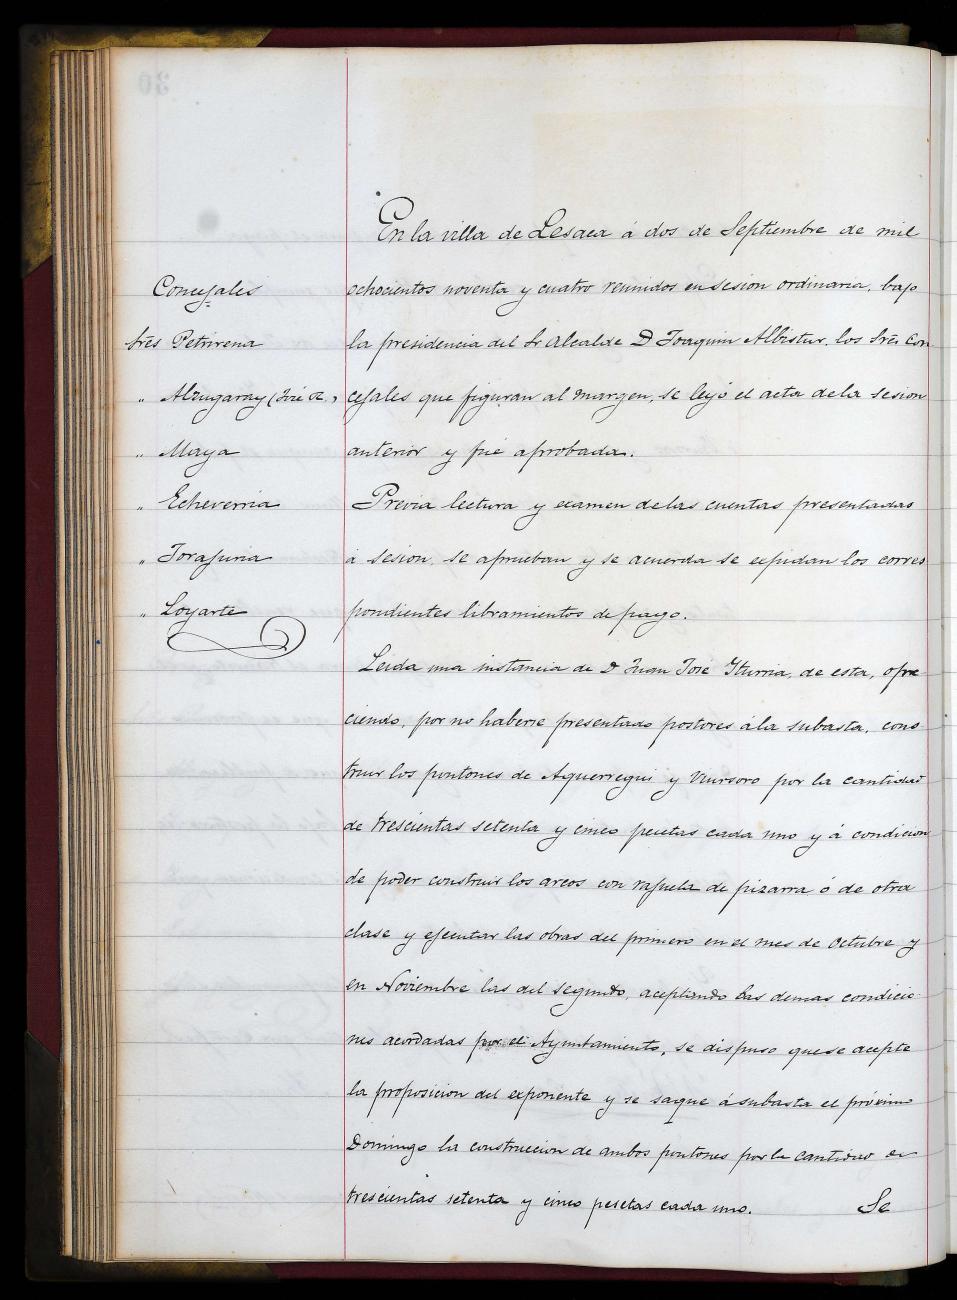 En la villa de Lesaca á dos de Septiembre de mil
Concejales
ochocientos noventa y cuatro reunidos en sesion ordinaria, bajo
Sres Petrirena
la presidencia del Sr Alcalde D Joaquin Albistur, los Sres Con
" Alzugaray (José
cejales que figuran al margen, se leyó el acta de la sesion
" Maya
anterior y fué aprobada.
" Echeverria
Previa lectura y examen de las cuentas presentadas
" Torajuria
á sesion, se aprueban y se acuerda se expidan los corres
" Loyarte
pondientes libramientos de pago.
Leida una instancia de D Juan José Iturria, de esta, ofre
ciendo, por no haberse presentado postores á la subasta, cons
truir los pontones de Aguerregui y por la cantidad
de trescientas setenta y cinco pesetas cada uno y á condicion
de poder construir los arcos con rajuela de pizarra ó de otra
clase y ejecutar las obras del primero en el mes de Octubre y
en Noviembre las del segundo, aceptando las demas condicio
nes acordadas por el Ayuntamiento, se dispuso que se acepte
la proposicion del exponente y se saque á subasta el próximo
Domingo la construccion de ambos pontones por la cantidad de
trescientas setenta y cinco pesetas cada uno. Se